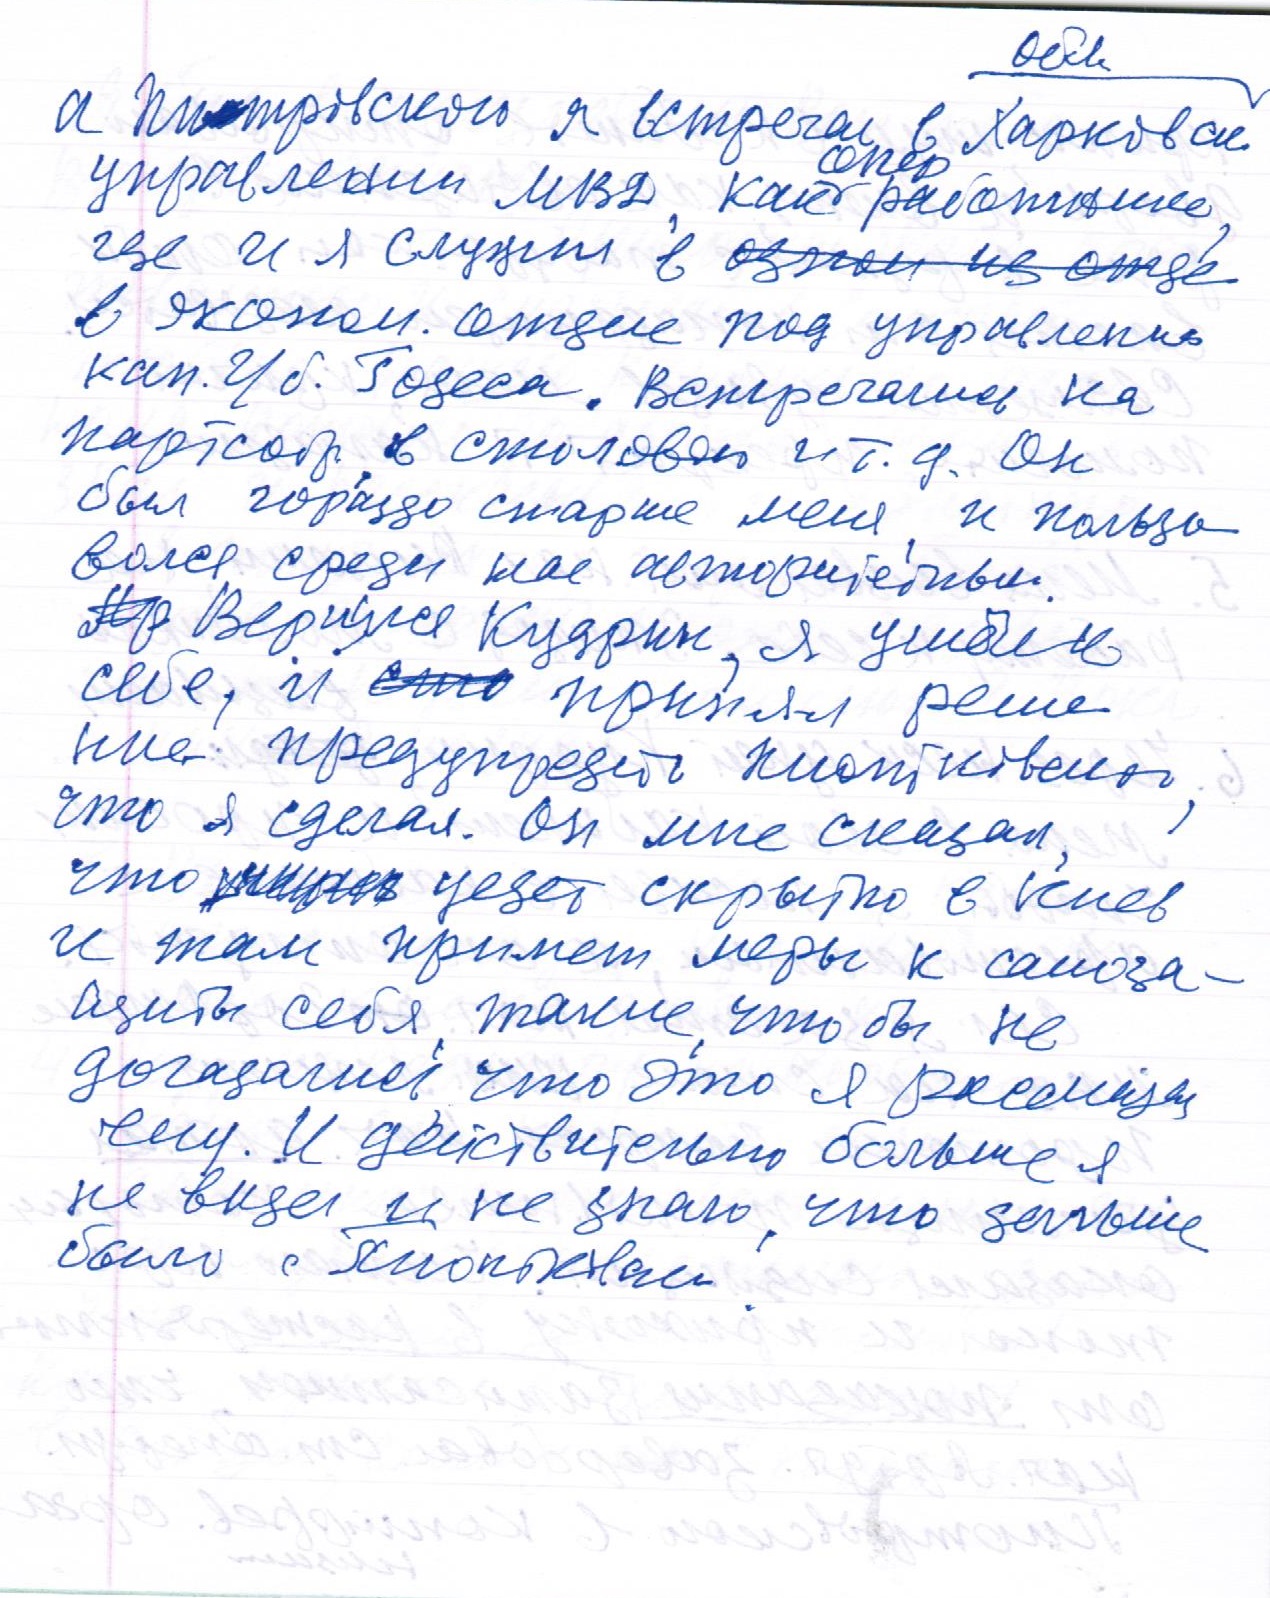 обл.
а Пиотровского я встречал в Харковск.
управлении МВД, как опер работника,
где и я служил в одном из отде
в эконом. отделе под управлением
кап. г/б. Годеса. Встречались на
партсобр, в столовой и т. д. Он
был гораздо старше меня, и пользо
вался среди нас авторитетным.
Вернулся Кудрин, я ушел к
себе, и принял реше
ние предупредить
что я сделал. Он мне сказал,
что уедет скрытно в Киев
и там примет меры к самоза-
щиты себя, такие, что бы не
догадались, что это я
чену. И действительно больше я
не видел и не знаю, что дальше
было с